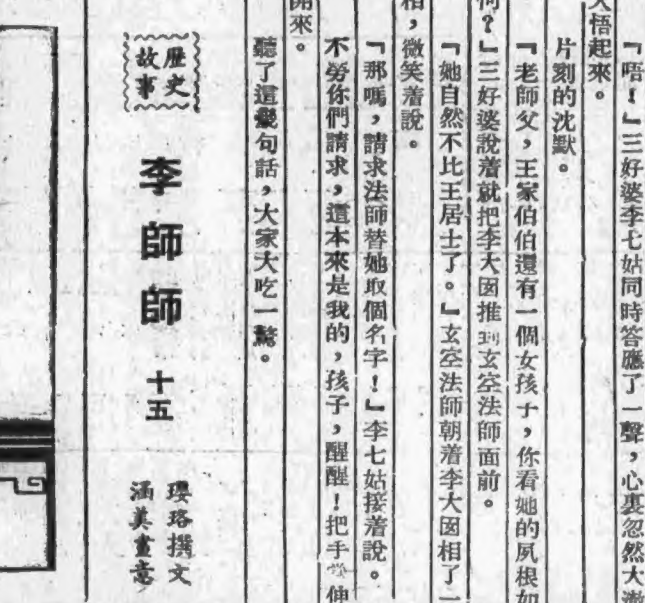 『唔！』三好婆李七姑同時答應了一聲，心裏忽然大澈
大悟起來。
片刻的沈默。
『老師父，王家伯伯還有一個女孩子，你看她的夙根如
何？』三好婆說着就把李大囡推到玄空法師面前。
『她自然不比王居士了。』玄空法師朝着李大囡相了一
相，微笑着說。
『那嗎，請求法師替她取個名字！』李七姑接着說。
不勞你們請求，這本來是我的，孩子，醒醒！把手伸
開來。
聽了這幾句話，大家大吃一驚。
歷史
故事
李師師 十五
瓔珞撰文
涵美畫意